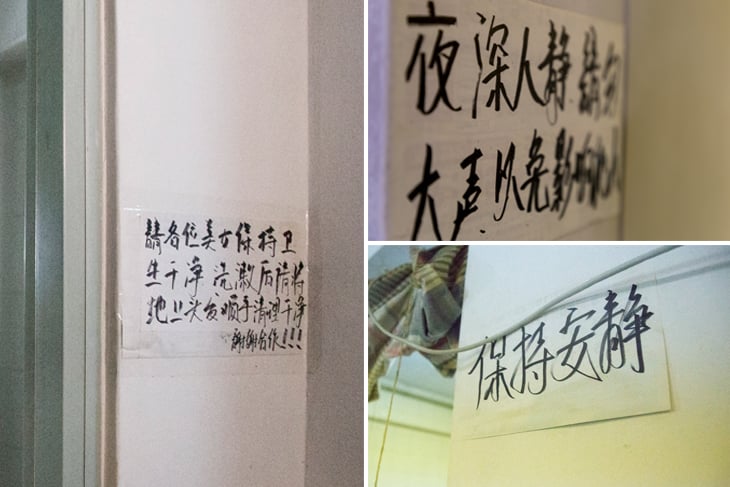 請各位美女保持卫
生干净 洗漱后請将
地上头发顺手清理干净
謝謝合作!!!
夜深人静請勿
大声以免影响他人
保持安静